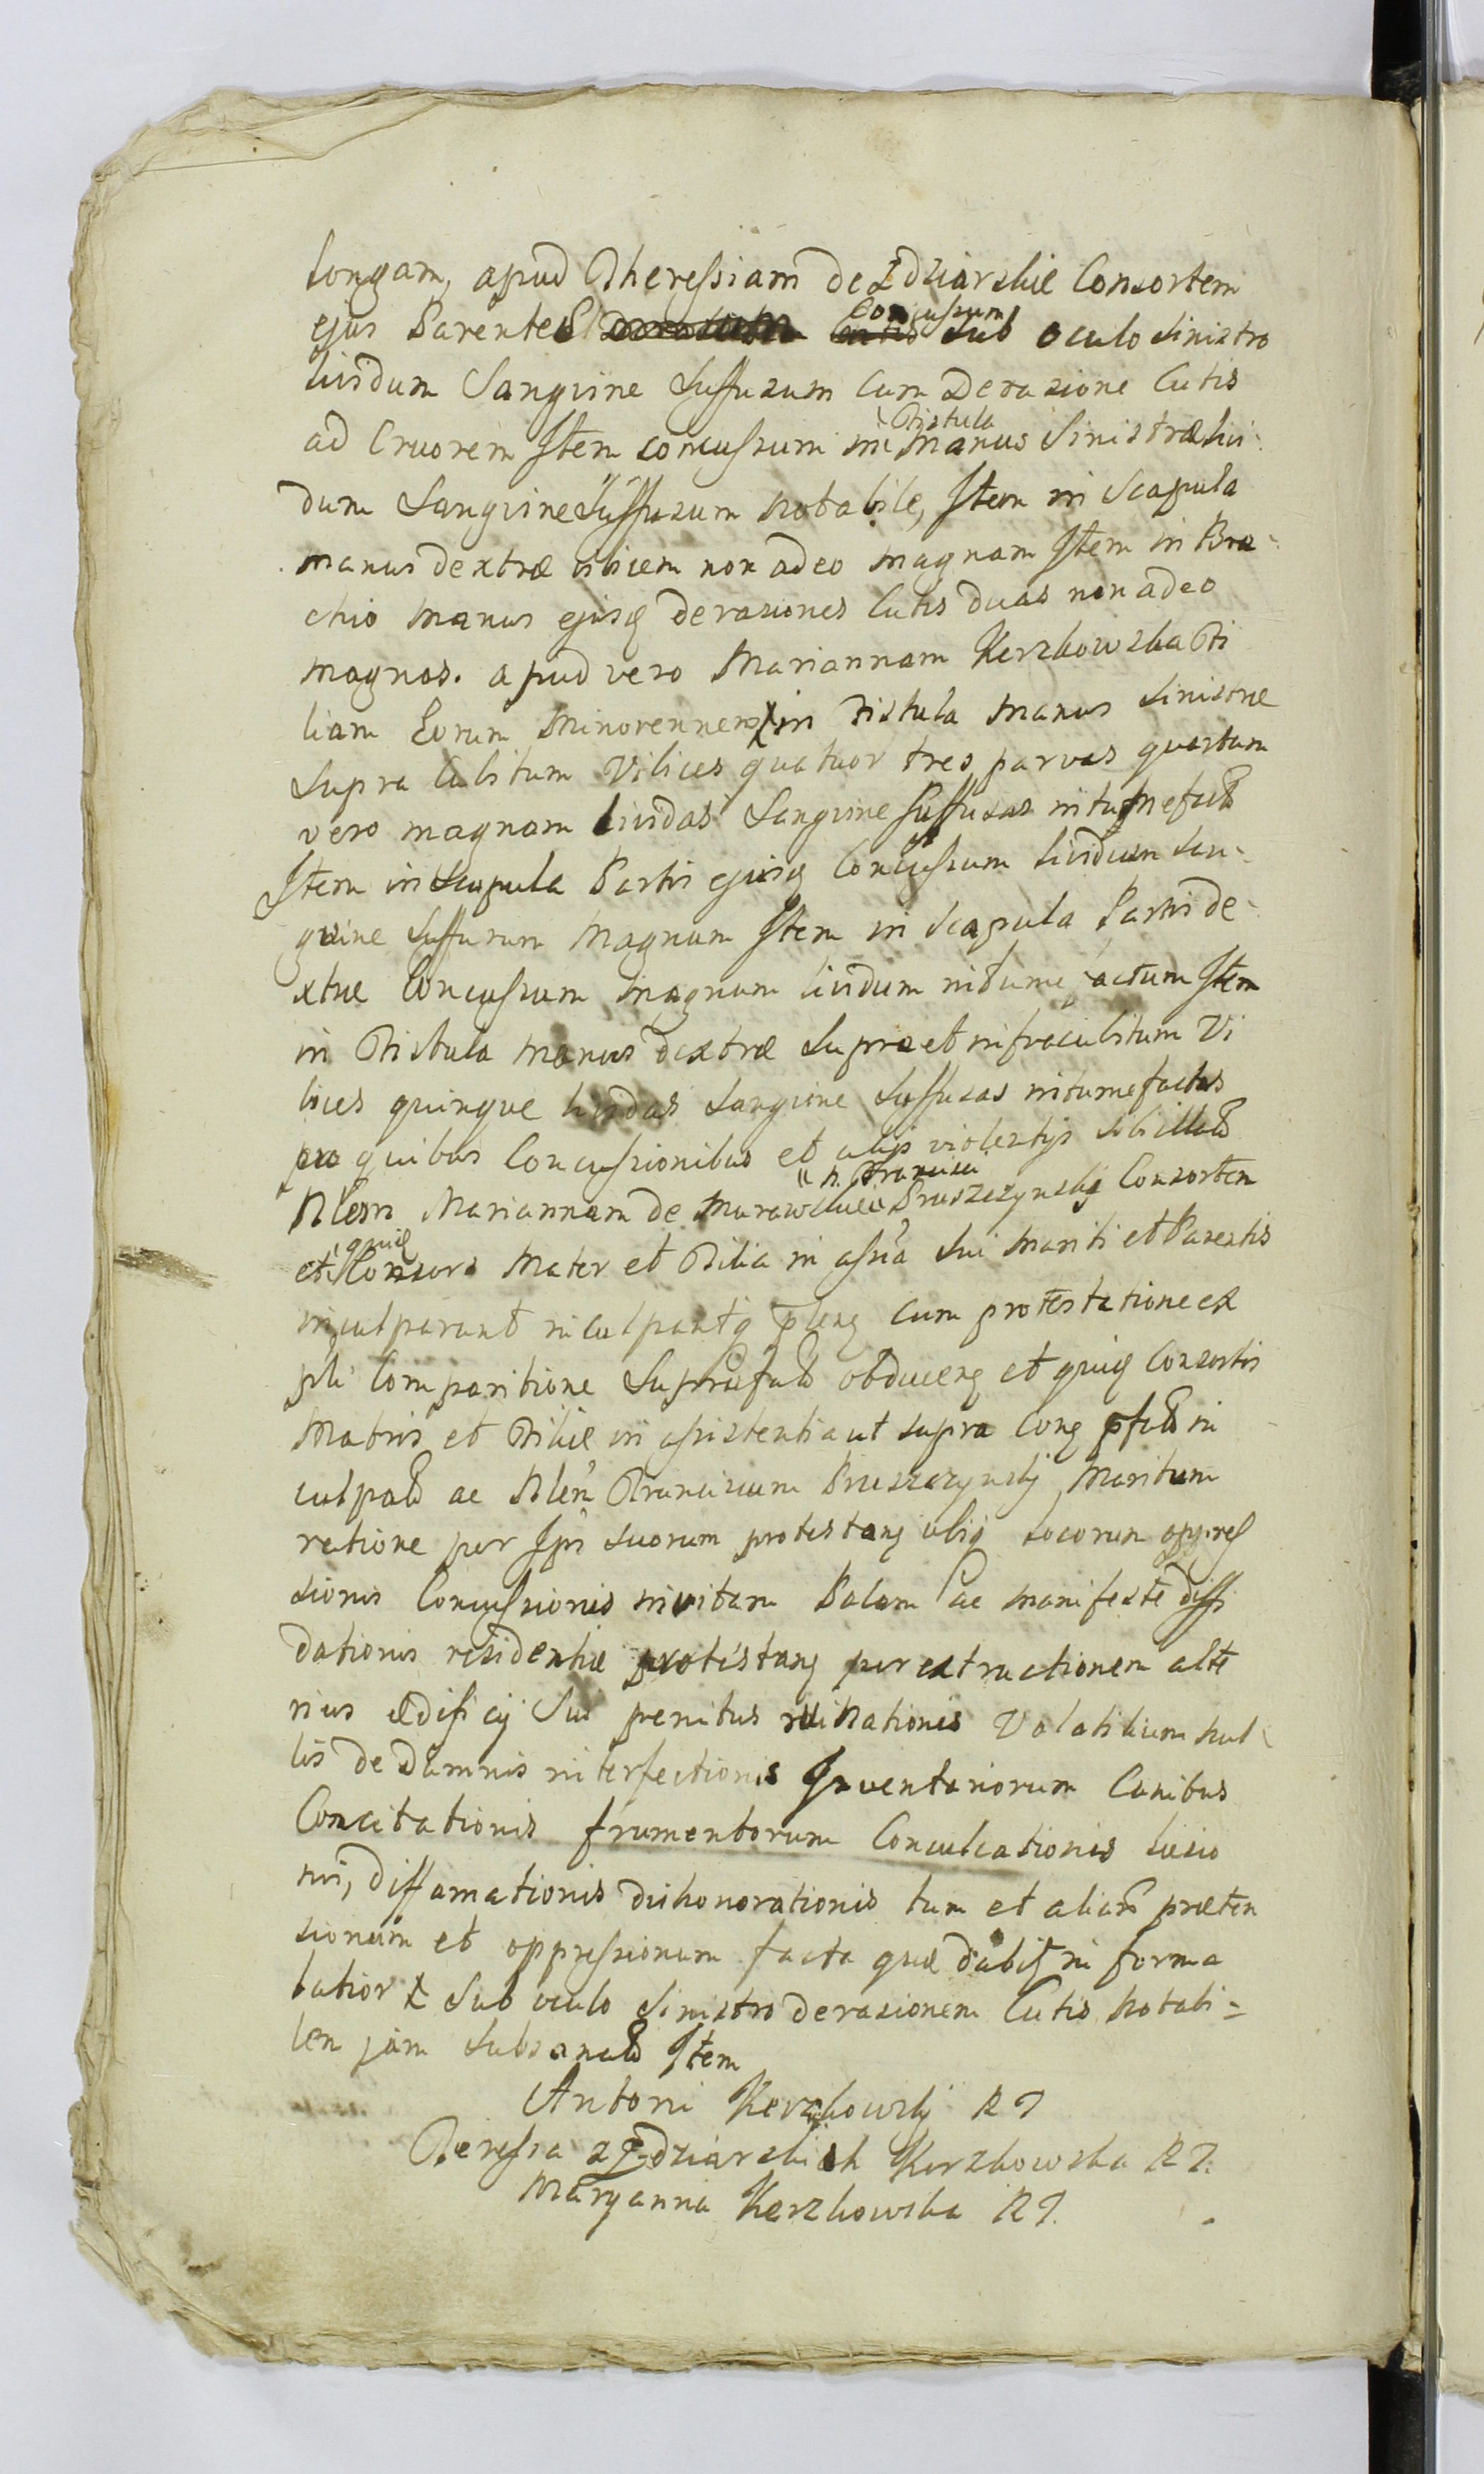 longam, apud Theressiam de Zdziarskie Consortem
ejus Parentes Concussum sub oculo sinistro
lividum Sanguine suffusum cum Derasione Cutis
ad Cruorem Item concussum in Fistula manus sinistræ livi-
dum Sanguine suffusum notabile, Item in Scapula
manus dextræ vibicem non adeo magnam Item in Bra-
chio manus ejusq derasiones Cutis duas non adeo
magnas. apud vero Mariannam Kerzkowska Fi
liam Eorum Minorennem in Fistula manus sinistræ
supra Cubitum Vibices quatuor tres parvas quartam
vero magnam lividas Sanguine suffusas intumefact
Item in Scapula Partis ejusq Concussum lividum San-
guine suffusum magnum Item in Scapula Partis de-
xtræ Concussum magnum lividum intumefactum Item
in Fistula manus dextræ supra et infra cubitum Vi
bices quinque lividas Sanguine suffusas intumefactas
pro quibus Concussionibus et alijs violentijs sibi illat
Nlem Mariannam de Murawskie N. Francisci Pruszczynskij Consortem
et Consors Mater et Filia in assa sui Mariti et Parentis
inculparunt inculpantq cum protestatione ex
pli Comparitione Supra obducen et Consortis
Matris et Filiæ in assistentia ut supra
culpat ac Nlem Franciscum Pruszczynskij Maritum
ratione per Ips suorum protestanq locorum oppres
sionis Concussionis invitam Palam ac manifeste diffi
dationis residentiæ protestanq per extructionem alte
rius ædificij sui penitus ruinationis Volatilium nul
lis de Damnis interfectionis Inventariorum Canibus
Concitationis frumentorum Conculcationis læsio
nis, diffamationis dishonorationis tum et aliarum præten
sionum et oppressionum facta quæ dabit in forma
latior X sub oculo sinistro derasionem Cutis notabi-
lem jam subsanat Item
Antoni Kerzkowskij R J
Teressa z Zdziarskich Kerzkowska R J.
Maryanna Kerzkowska R J.